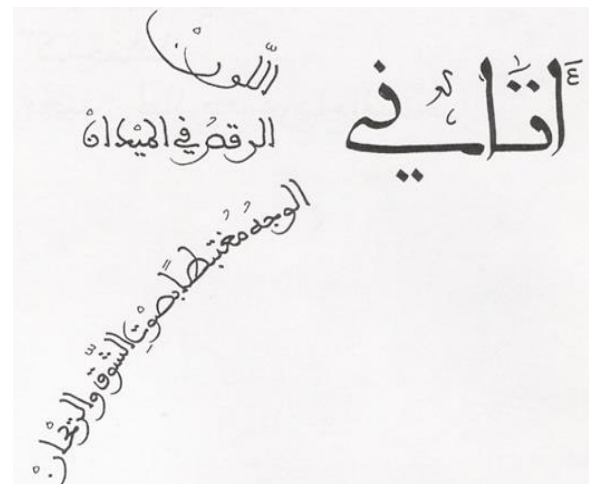 اللّونْ
الرقصُ في الميْدانْ
الوجهُ مُغتبطاً بصوْتِ الشَّوْق والريحانْ